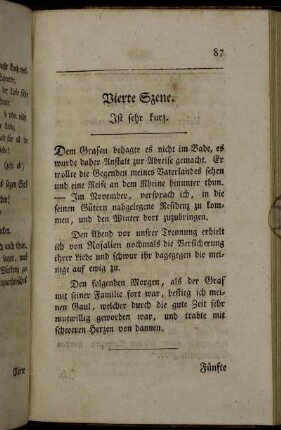 87
Vierte Szene.
Ist sehr kurz.
Dem Grafen behagte es nicht im Bade, es
wurde daher Anstalt zur Abreise gemacht. Er
wollte die Gegenden meines Vaterlandes sehen
und eine Reise an dem Rheine hinunter thun.
— Im November, versprach ich, in die
seinen Gütern nahgelegene Residenz zu kom-
men, und den Winter dort zuzubringen.
Den Abend vor unsrer Trennung erhielt
ich von Rosalien nochmals die Versicherung
ihrer Liebe und schwur ihr dagegegen die mei-
nige auf ewig zu.
Den folgenden Morgen, als der Graf
mit seiner Familie fort war, bestieg ich mei-
nen Gaul, welcher durch die gute Zeit sehr
mutwillig geworden war, und trabte mit
schweren Herzen von dannen.
Fünfte